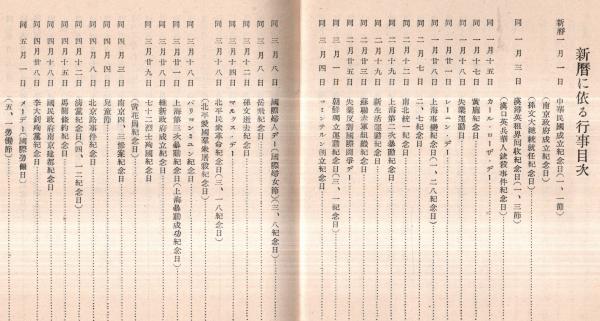 新曆に依る行事目次
新曆 一月一日 中華民國成立紀念日(一、一節)
南京政府成立紀念日
(孫文大總統就任紀念日)
同 一月三日 漢潯英租界囘收紀念日(一、三節)
(漢口英兵華人銃殺事件紀念日)
同 一月十五日 カール、ローザ、デー
同 一月十七日 黃龐紀念日
失業運動日
レーニン、デー
同 一月廿八日 上海事變紀念日(一、二八紀念日)
同 二月七日 二、七紀念日
同 二月十二日 南北統一紀念日
新生活運動紀念日
蘇聯赤軍組織紀念日
失業反對國際鬪爭デー
同 三月一日 朝鮮獨立運動紀念日(三、一紀念日)
同 三月四日 コミンテルン創立紀念日
同 三月八日 國際婦人デー(國際婦女節)(三、八紀念日)
同 三月八日 岳飛紀念日
同 三月十二日 孫文逝去紀念日
同 三月十四日 マルクス、デー
同 三月十八日 北平民衆革命紀念日(三、一八紀念日)
(北平愛國羣衆屠殺紀念日)
同 三月十八日 パリコンミユン紀念日
上海第三次暴動紀念日(上海暴動成功紀念日)
同 三月廿八日 維新政府成立紀念日
同 三月廿九日 七十二烈士殉國紀念日
(黃花岡紀念日)
同 四月三日 南京四、三慘案紀念日
同 四月四日 兒童節
同 四月八日 北京路事件紀念日
同 四月十二日 淸黨紀念日(四、一二紀念日)
同 四月十五日 馬關條約紀念日
同 四月十八日 國民政府南京建都紀念日
同 四月廿八日 李大釗殉黨紀念日
同 五月一日 メーデー(國際勞働日)
(五、一勞働節)